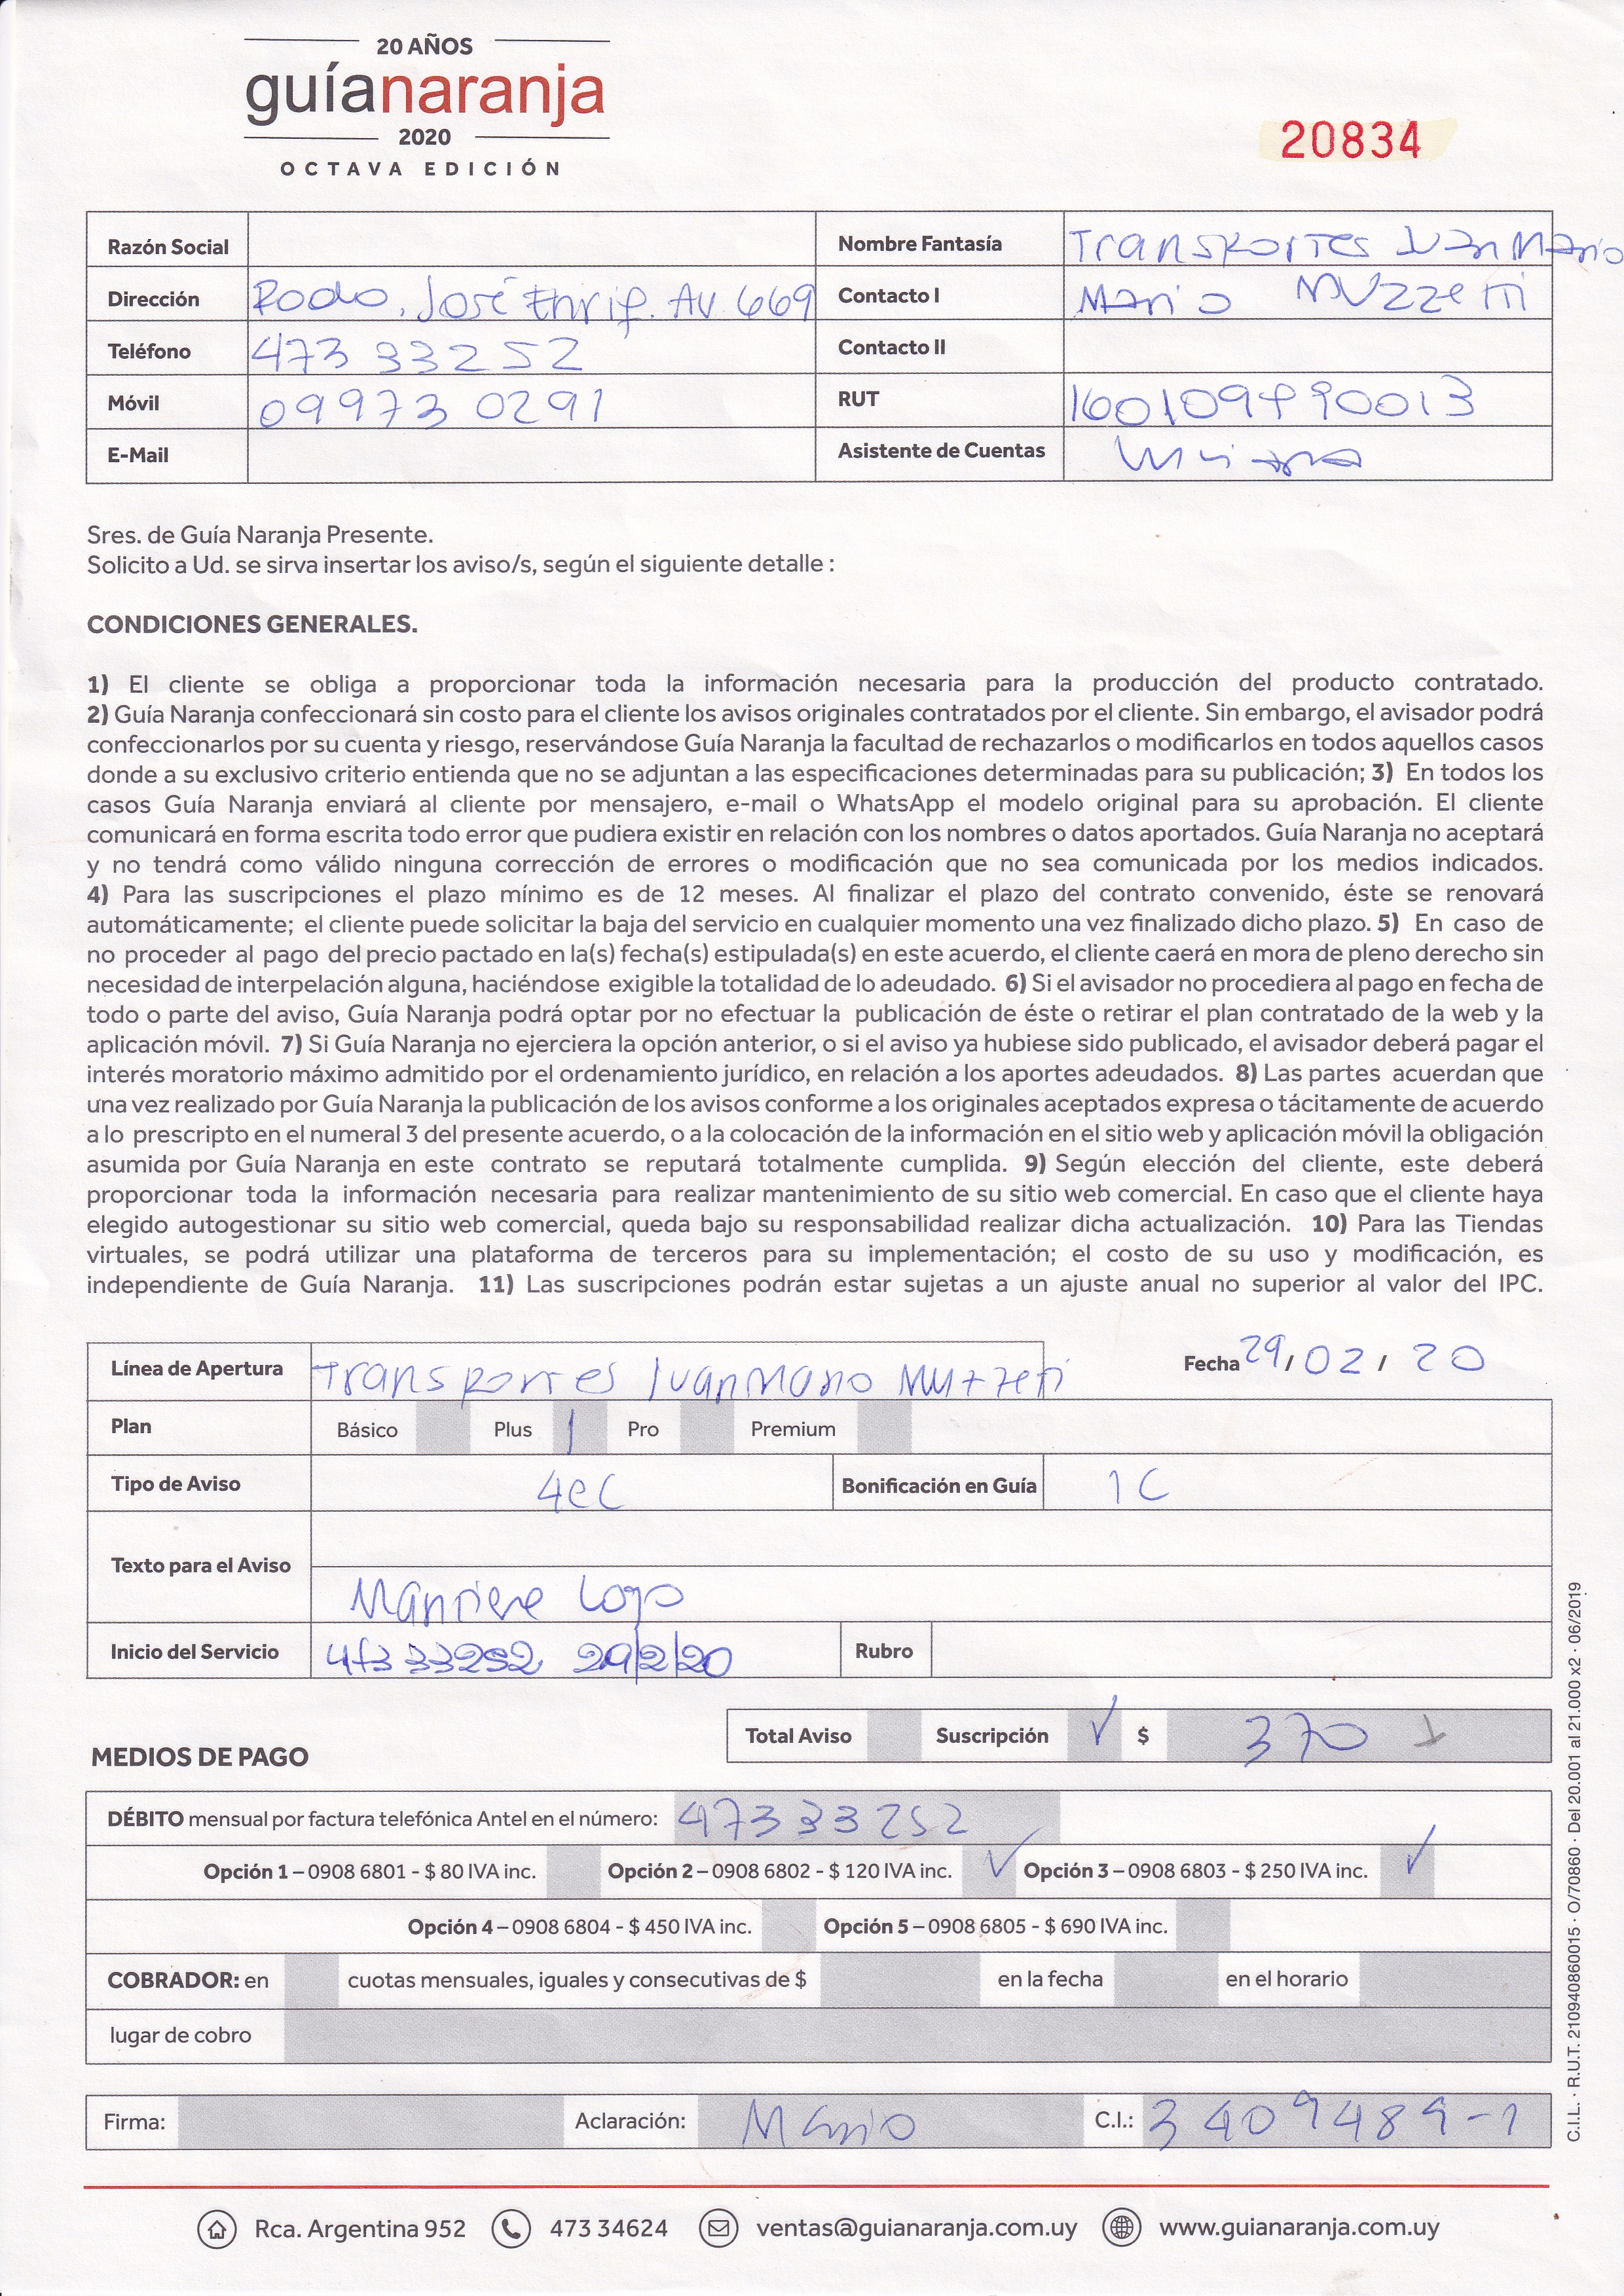 20 AÑOS
guíanaranja
2020
OCTAVA EDICIÓN
20834
Razón Social
Nombre Fantasía Transportes Ivan Mario
Dirección Rodo, José Enriq. Av 669
Contacto I Mario Muzzetti
Teléfono 473 33252
Contacto II
Móvil 09973 0291
RUT
E-Mail
Asistente de Cuentas
Sres. de Guía Naranja Presente.
Solicito a Ud. se sirva insertar los aviso/s, según el siguiente detalle :
CONDICIONES GENERALES.
1) El cliente se obliga a proporcionar toda la información necesaria para la producción del producto contratado.
2) Guía Naranja confeccionará sin costo para el cliente los avisos originales contratados por el cliente. Sin embargo, el avisador podrá
confeccionarlos por su cuenta y riesgo, reservándose Guía Naranja la facultad de rechazarlos o modificarlos en todos aquellos casos
donde a su exclusivo criterio entienda que no se adjuntan a las especificaciones determinadas para su publicación; 3) En todos los
casos Guía Naranja enviará al cliente por mensajero, e-mail o WhatsApp el modelo original para su aprobación. El cliente
comunicará en forma escrita todo error que pudiera existir en relación con los nombres o datos aportados. Guía Naranja no aceptará
y no tendrá como válido ninguna corrección de errores o modificación que no sea comunicada por los medios indicados.
4) Para las suscripciones el plazo mínimo es de 12 meses. Al finalizar el plazo del contrato convenido, éste se renovará
automáticamente; el cliente puede solicitar la baja del servicio en cualquier momento una vez finalizado dicho plazo. 5) En caso de
no proceder al pago del precio pactado en la(s) fecha(s) estipulada(s) en este acuerdo, el cliente caerá en mora de pleno derecho sin
necesidad de interpelación alguna, haciéndose exigible la totalidad de lo adeudado. 6) Si el avisador no procediera al pago en fecha de
todo o parte del aviso, Guía Naranja podrá optar por no efectuar la publicación de éste o retirar el plan contratado de la web y la
aplicación móvil. 7) Si Guía Naranja no ejerciera la opción anterior, o si el aviso ya hubiese sido publicado, el avisador deberá pagar el
interés moratorio máximo admitido por el ordenamiento jurídico, en relación a los aportes adeudados. 8) Las partes acuerdan que
una vez realizado por Guía Naranja la publicación de los avisos conforme a los originales aceptados expresa o tácitamente de acuerdo
a lo prescripto en el numeral 3 del presente acuerdo, o a la colocación de la información en el sitio web y aplicación móvil la obligación
asumida por Guía Naranja en este contrato se reputará totalmente cumplida. 9) Según elección del cliente, este deberá
proporcionar toda la información necesaria para realizar mantenimiento de su sitio web comercial. En caso que el cliente haya
elegido autogestionar su sitio web comercial, queda bajo su responsabilidad realizar dicha actualización. 10) Para las Tiendas
virtuales, se podrá utilizar una plataforma de terceros para su implementación; el costo de su uso y modificación, es
independiente de Guía Naranja. 11) Las suscripciones podrán estar sujetas a un ajuste anual no superior al valor del IPC.
Línea de Apertura Transportes Ivan Mario Muzzeti
Fecha 29/ 02 / 20
Plan Básico Plus 1 Pro Premium
Tipo de Aviso 4eC Bonificación en Guía 1 C
Texto para el Aviso
Mantiene Logo
Inicio del Servicio 473 33252 29/2/20 Rubro
Total Aviso Suscripción ✓ $ 370
MEDIOS DE PAGO
DÉBITO mensual por factura telefónica Antel en el número: 473 33252
Opción 1 – 0908 6801 - $ 80 IVA inc. Opción 2 – 0908 6802 - $ 120 IVA inc. ✓ Opción 3 – 0908 6803 - $ 250 IVA inc. ✓
Opción 4 – 0908 6804 - $ 450 IVA inc. Opción 5 – 0908 6805 - $ 690 IVA inc.
COBRADOR: en cuotas mensuales, iguales y consecutivas de $ en la fecha en el horario
lugar de cobro
Firma: Aclaración: Mario C.I.: 3 409489-1
Rca. Argentina 952 473 34624 ventas@guianaranja.com.uy www.guianaranja.com.uy
C.I.L. · R.U.T. 210940860015 · O/70860 · Del 20.001 al 21.000 x2 · 06/2019